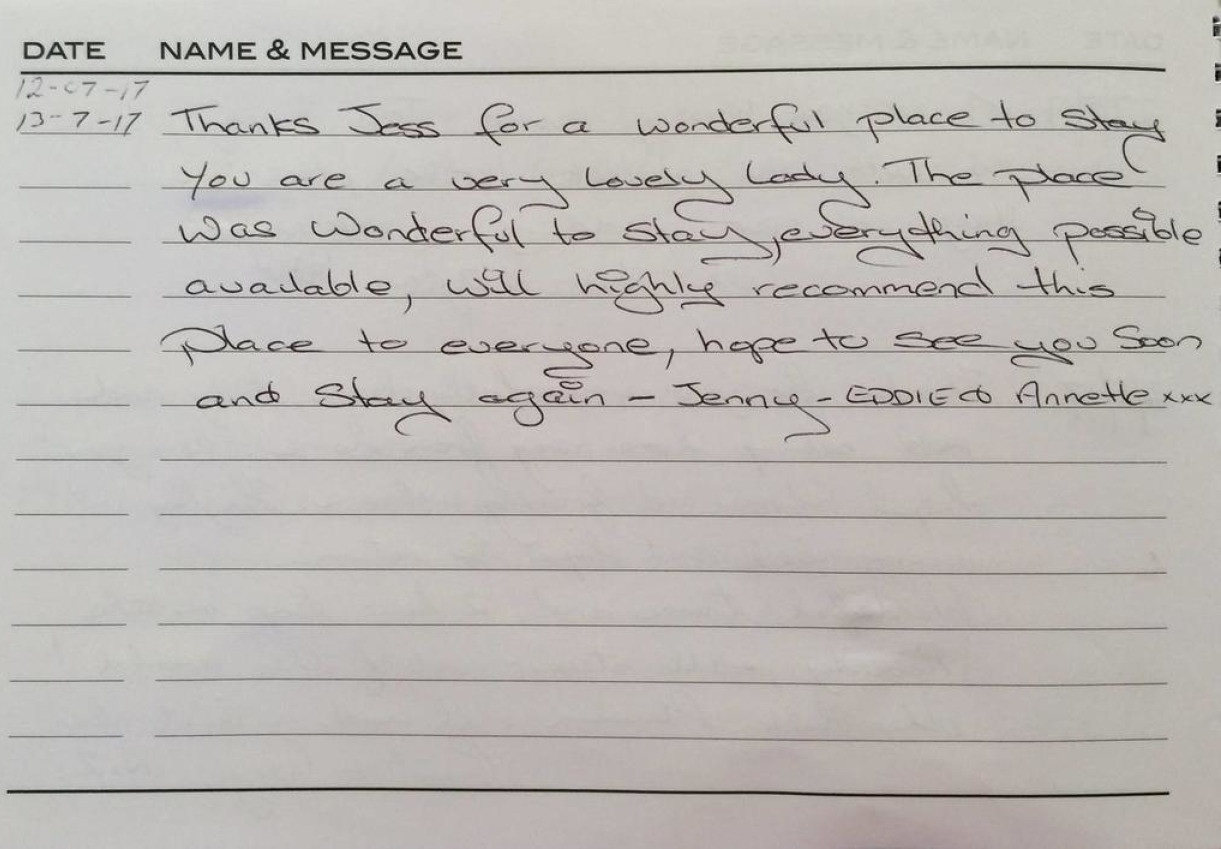 DATE NAME & MESSAGE
12-07-17
13-7-17 Thanks Jess for a wonderful place to Stay
You are a very Lovely Lady. The place
was Wonderful to stay, everything possible
available, will highly recommend this
Place to everyone, hope to see you Soon
and Stay again - Jenny - EDDIE & Annette xxx